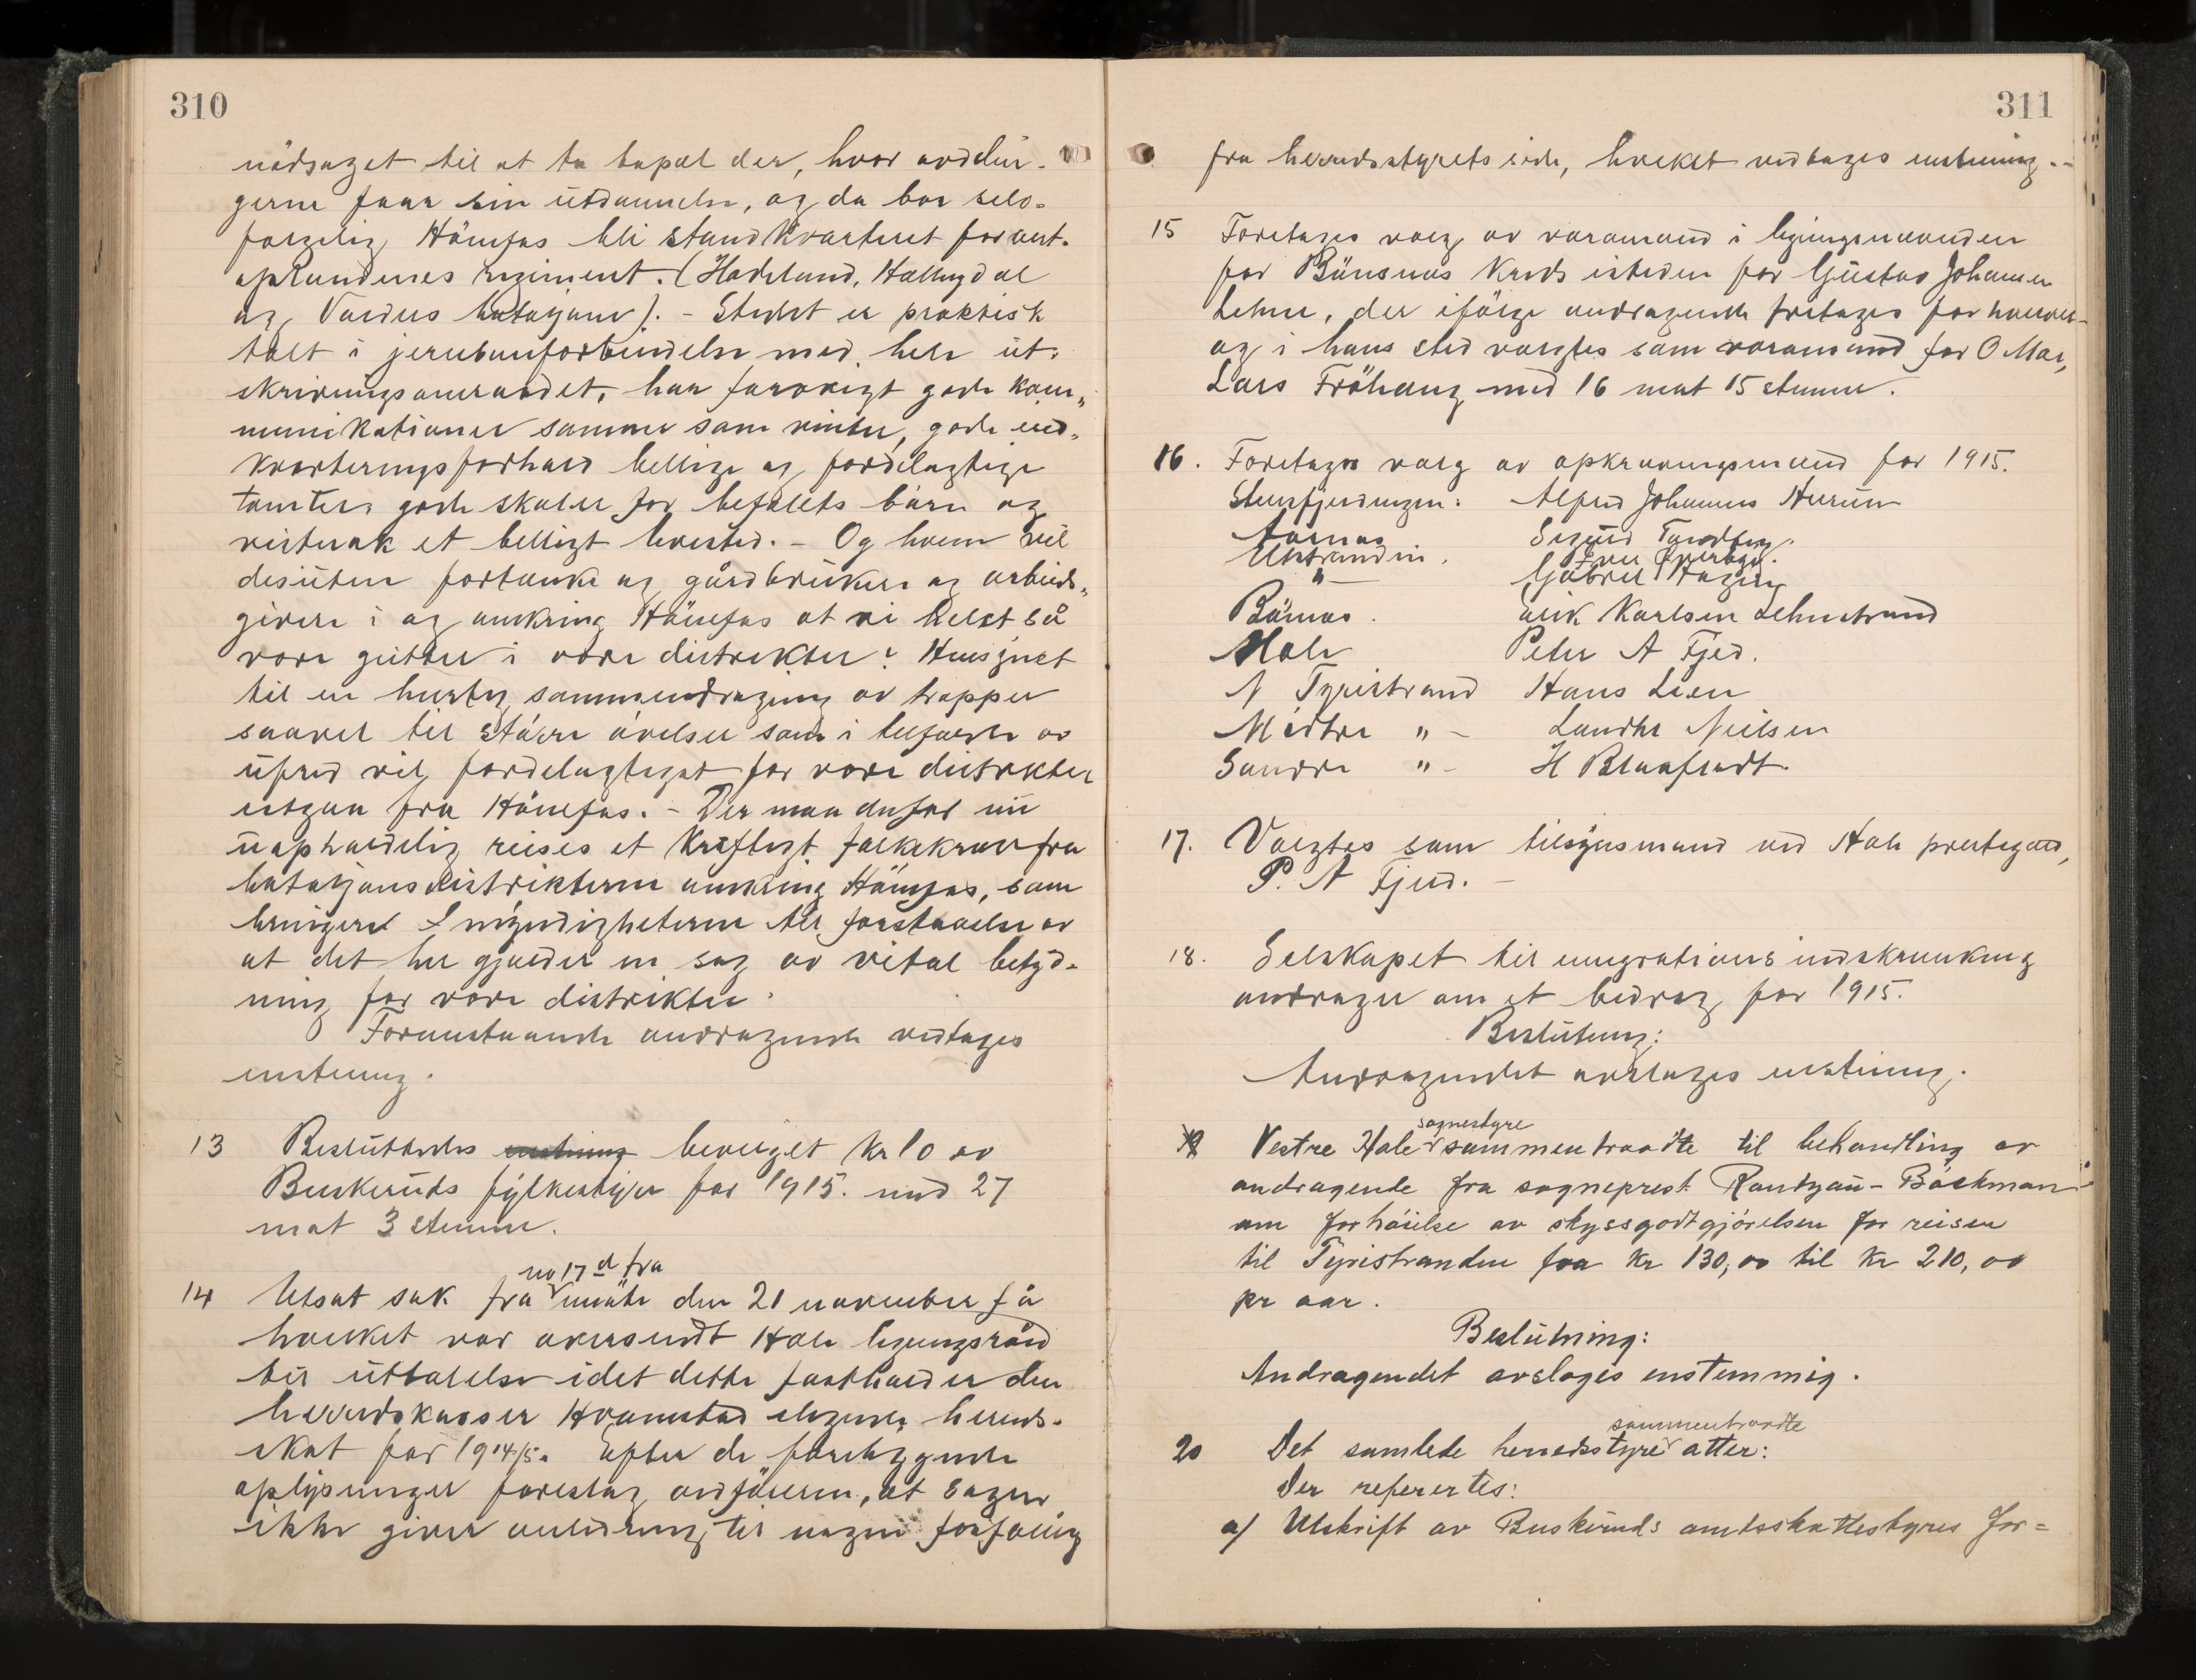 310
nödsaget til at ta bopæl der, hvor avdelin-
gerne faar sin utdannelse, og da bør selv-
følgelig Hönefos bli standkvarteret for vest-
oplandenes regiment. (Hadeland, Hallingdal
og Valdres bataljoner). - Stedet er praktisk
talt i jernbaneforbindelse med hele ut-
skrivningsomraadet, har forövrigt gode kom-
munikationer sommer som vinter, gode ind-
kvarteringsforhold billige og fordelagtige
tomter, gode skoler for befalets barn og
virkelig et billigt levested. - Og hvem vil
desuten fortænke og gårdbrukere og arbeids-
givere i og omkring Hönefos at vi helst så
vore gutter i våre distrikter? Hensynet
til en hurtig sammendragning av tropper
saavel til större övelser som i tilfælde av
ufred vil fordelagtigst for vore distrikter
utgaa fra Hönefos. - Der maa derfor nu
uopholdelig reises et kraftigt folkekrav fra
bataljonsdistrikterne omkring Hönefos, som
bringer myndigheterne til forstaaelse av
at det her gjælder en sag av vital betyd-
ning for vore distrikter.
Foranstaaende andragende vedtages
enstemmig.
13 Besluttedes enstemmig bevilget kr 10 av
Buskeruds fylkestyre for 1915. med 27
mot 3 stemmer.
no 17 d fra
14 Utsat sak fra möte den 21 november f å
hvilket var oversendt Hole ligningsråd
til uttalelse idet dette fastholder den
herredskasser Hvamstad iligne herreds-
skat for 1914/5. Efter de foreliggende
oplysninger foreslog ordföreren, at sagen
ikke giver anledning til nogen föføining
311
fra herredsstyrets side, hvilket vedtages enstemmig. -
15 Foretages valg av varamand i ligningsnævnden
for Bönsnes kreds isteden for Gustav Johannesen
Lehne, der ifölge andragende fritages for hvervet
og i hans sted valgtes som varamand for O Moe,
Lars Fröhaug med 16 mot 15 stemmer.
16. Foretages valg av opkrævningsmænd for 1915.
Stensfjerdingen: Alfred Johannes Hurum
Aasnes Sigurd Tandberg.
Utstranden.
" — Gabriel Hagen
Bönsnes. Erik Karlsen Lehnestrand
Hole Peter A Fjeld.
N Tyristrand Hans Lien
Midtre " - Landhl Nielsen
Söndre " - H Blaafarvdt.
17. Valgtes som tilsynsmand ved Hole prestegaard,
P. A Fjeld. -
18. Selskapet til emigrationsindskrænkning
andrager om et bidrag for 1915.
Beslutning:
Andragendet avslages enstemmig.
sognestyre
19 Vestre Hole sammentraadte til behandling av
andragende fra sogneprest Rantzau-Böckman
om forhöielse av skyssgodtgjörelsen for reisen
til Tyristranden fra kr 130,00 til kr 210,00
pr aar.
Beslutning:
Andragendet avsloges enstemmig.
sammentraadte
20 Det samlede herredsstyre atter:
Der refererte:
a/ Utskrift av Buskeruds amtsskattestyres for=